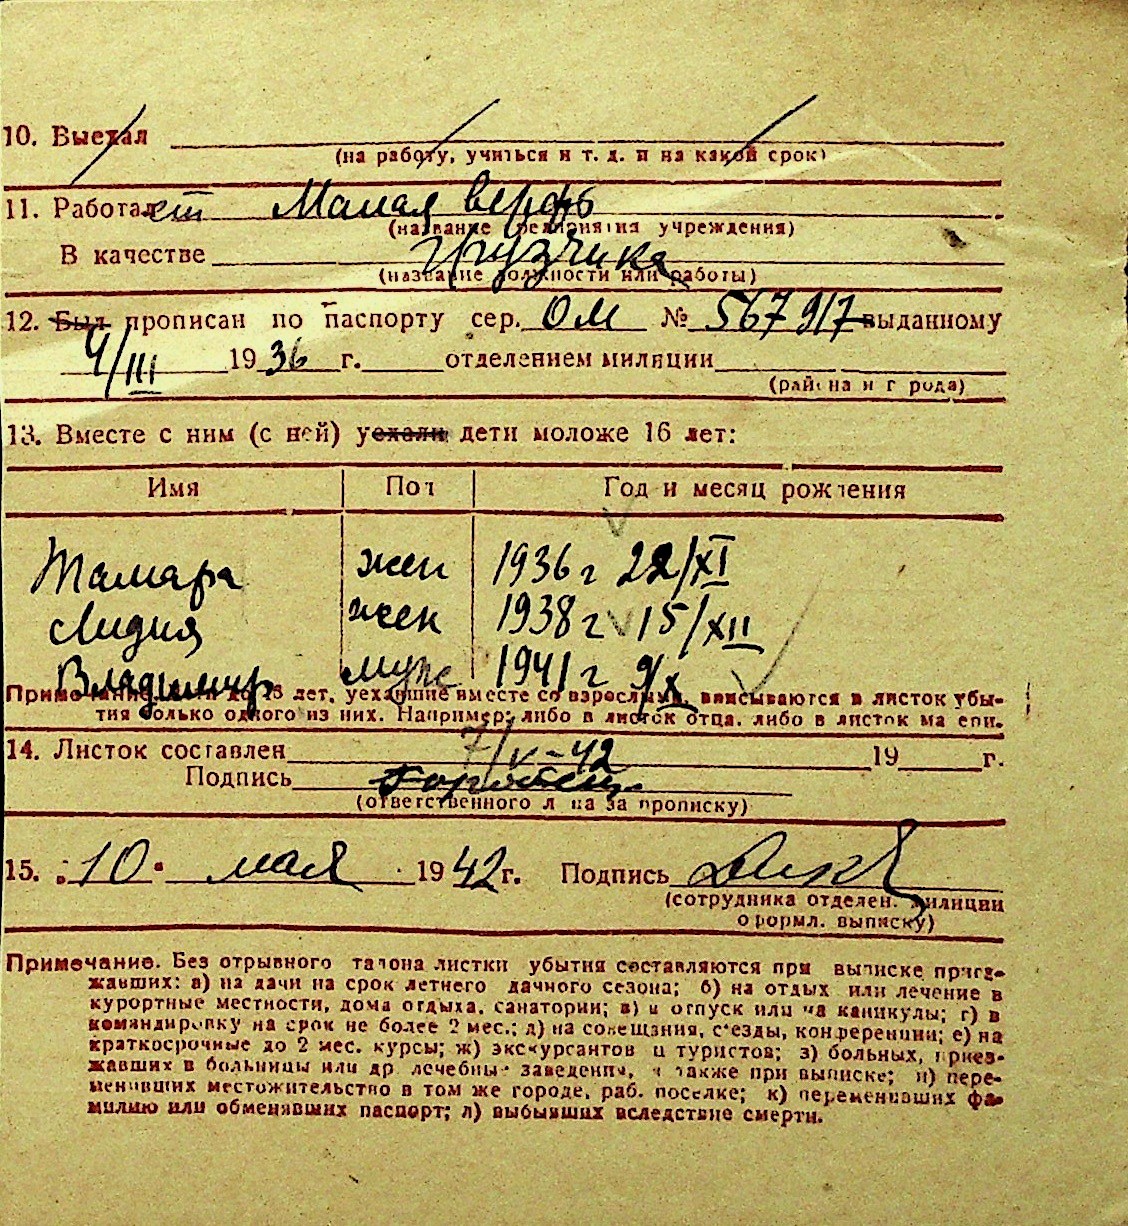 10. Выехал
(на работу, учиться и т. д. и на какой срок)
11. Работает Малая верфь
(название предприятия учреждения)
В качестве грузчика
(название должности или работы)
12. Был прописан по паспорту сер. ОМ № 567917 выданному
4/III 1936 г. отделением милиции
(района и города)
13. Вместе с ним (с ней) уехали дети моложе 16 лет:
Имя Пол Год и месяц рождения
Тамара жен 1936 г 22/XI
Лидия жен 1938 г 15/XII
Владимир муж 1941 г 9/X
Примечание. до 16 лет, уехавшие вместе со взрослыми, вписываются в листок убы-
тия только одного из них. Например: либо в листок отца, либо в листок матери.
14. Листок составлен 7/V-42 19 г.
Подпись
(ответственного лица за прописку)
15. "10" мая 1942 г. Подпись
(сотрудника отделен. милиции
оформл. выписку)
Примечание. Без отрывного талона листки убытия составляются при выписке приез-
жавших: а) на дачи на срок летнего дачного сезона; б) на отдых или лечение в
курортные местности, дома отдыха, санатории; в) в отпуск или на каникулы; г) в
командировку на срок не более 2 мес.; д) на совещания, съезды, конференции; е) на
краткосрочные до 2 мес. курсы; ж) экскурсантов и туристов; з) больных, приез-
жавших в больницы или др лечебные заведения, а также при выписке; и) пере-
менивших местожительство в том же городе, раб. поселке; к) переменивших фа-
милию или обменявших паспорт; л) выбывших вследствие смерти.